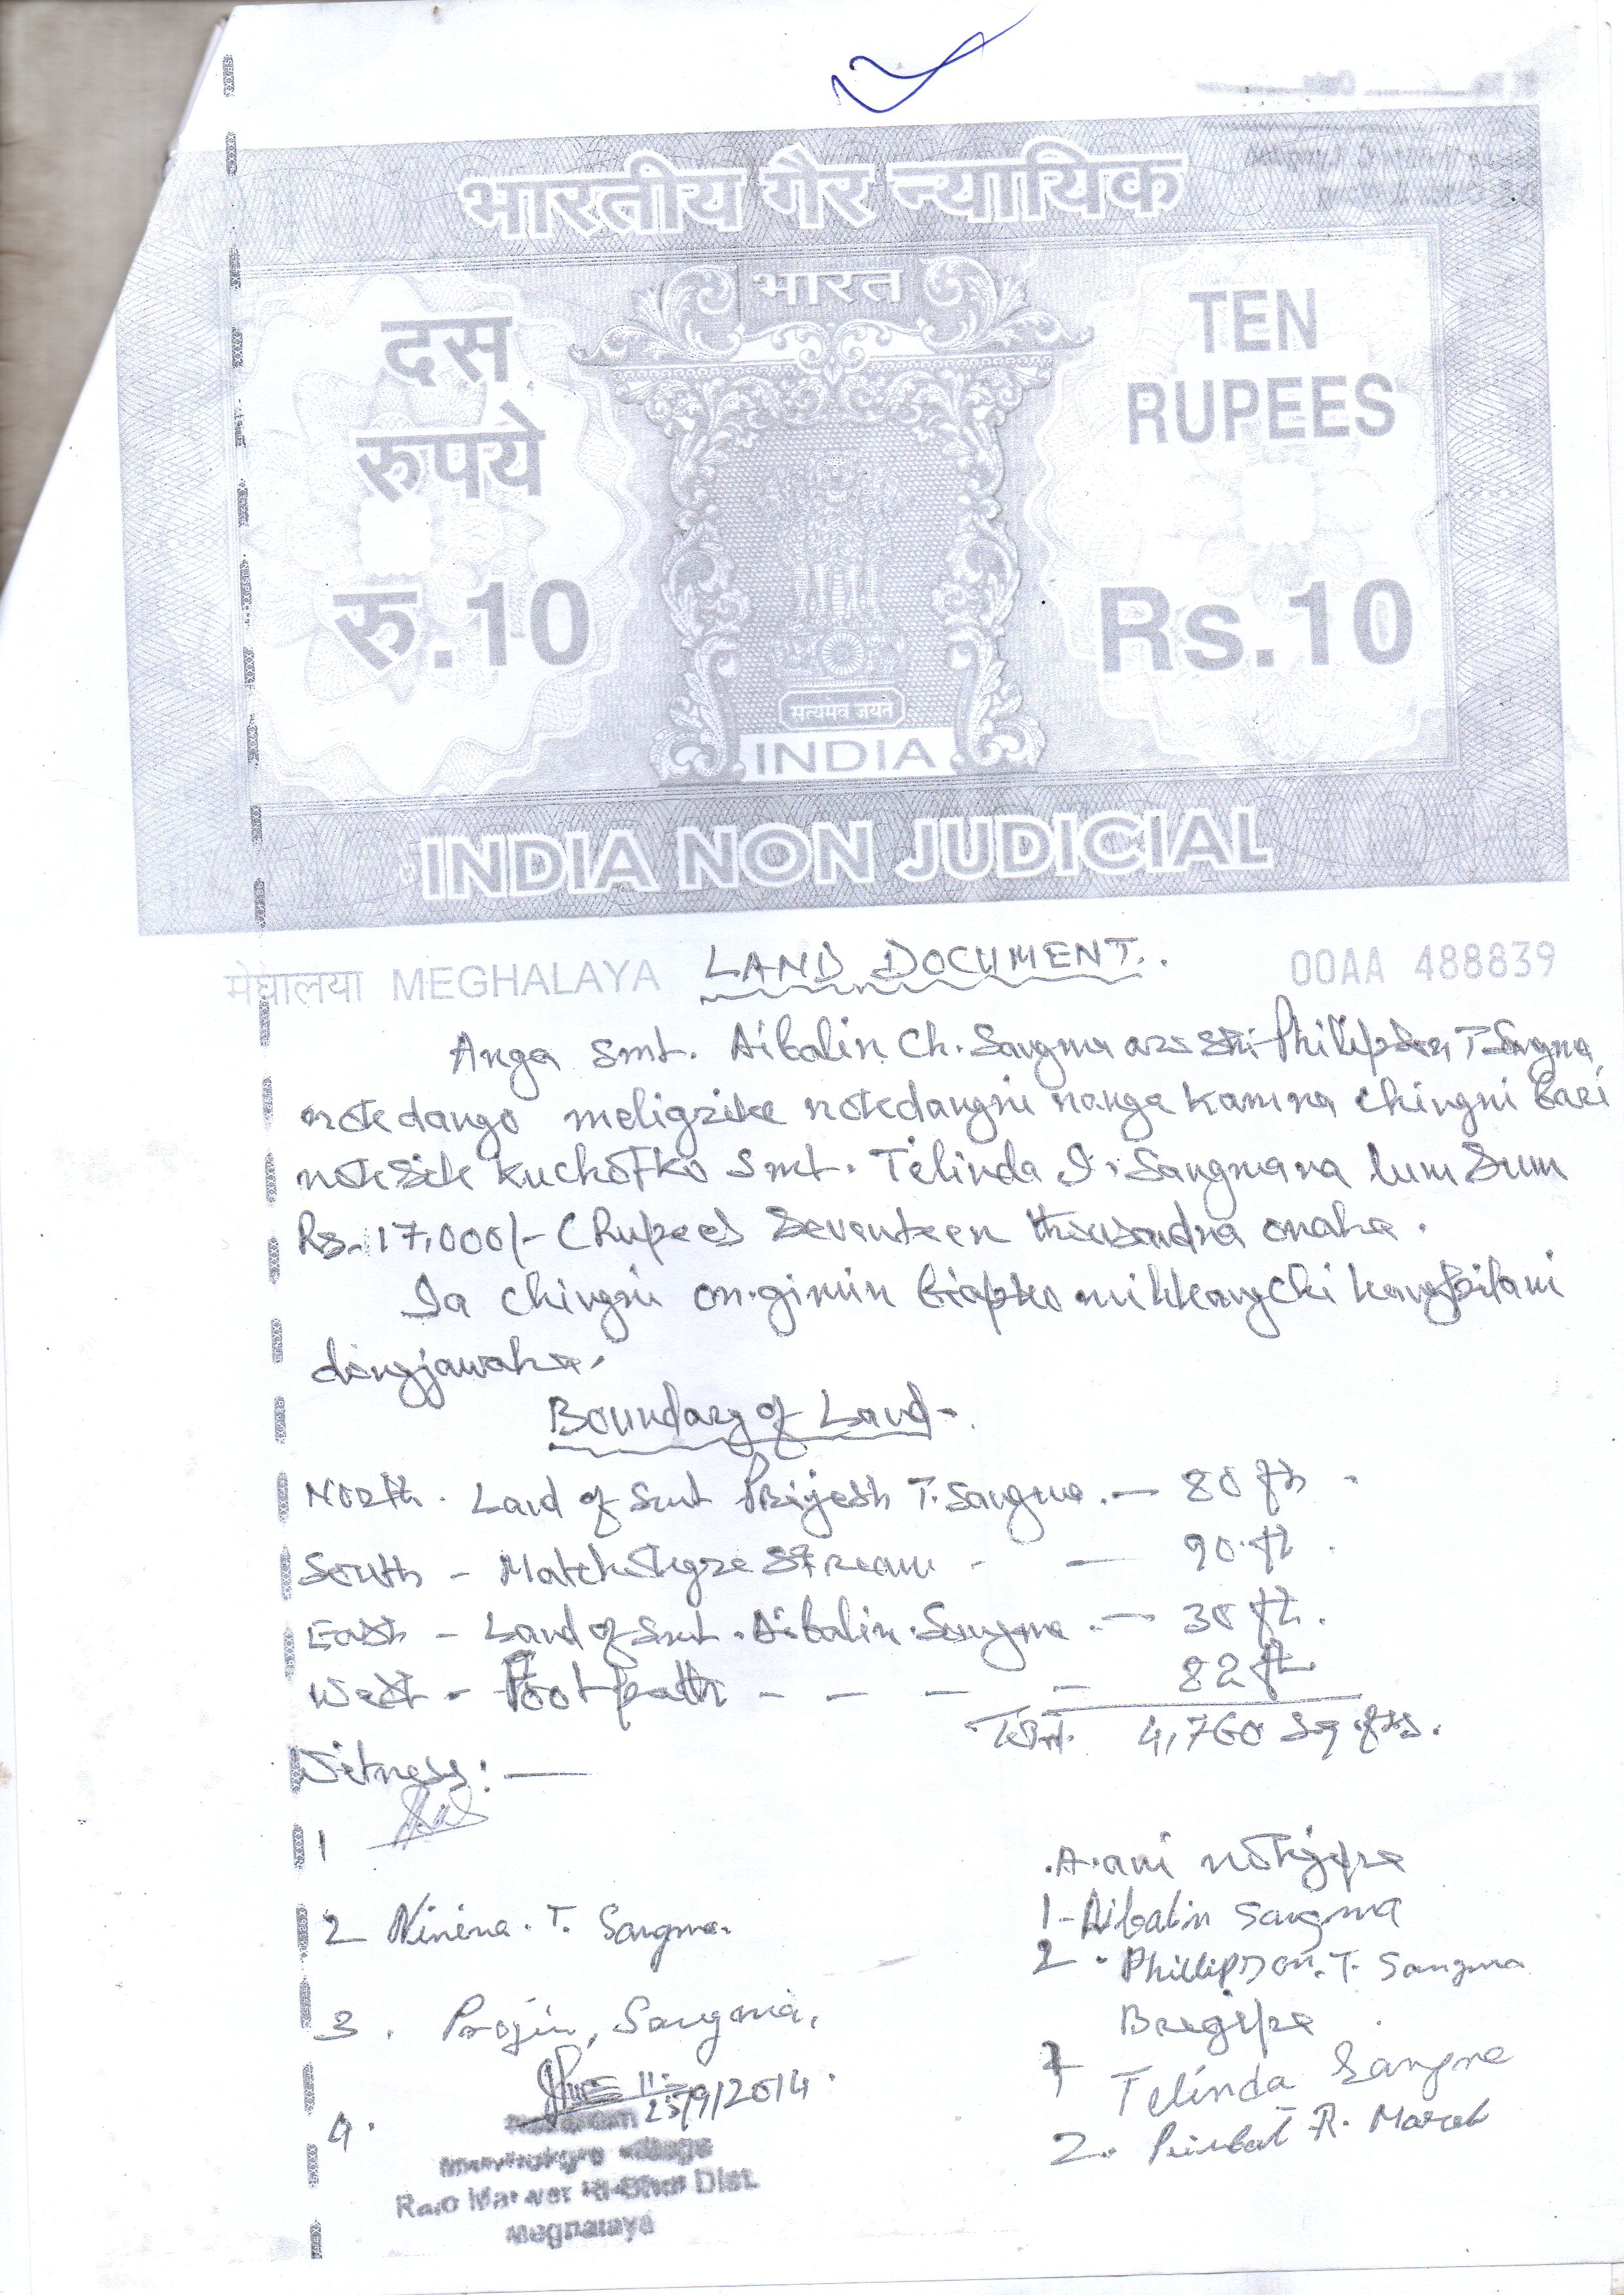 भारतीय गैर न्यायिक
भारत
दस
रुपये
रु.10
TEN
RUPEES
Rs.10
सत्यमेव जयते
INDIA
INDIA NON JUDICIAL
मेघालया MEGHALAYA
LAND DOCUMENT.
00AA 488839
Anga Smt. Aibalin Ch. Sangma aro Sri Philipson T. Sangma
nokdango meligrike nokdangni nanga kamna chingni bari
noksik kuchotko Smt. Telinda Sangmana lum Sum
Rs. 17,000/- (Rupees Seventeen thousandna onaha.
Ia chingni on.gimin biapko
dongjawaha.
Boundary of Land-
North - Land of Smt Brijesh T. Sangma. — 80 ft
South - Stream - — 90 ft
East - Land of Smt. Aibalin Sangma. — 30 ft.
West - Foot path - - - - 82 ft
Total 4,760 Sq fts.
Witness: —
1
2 Ninina. T. Sangma.
3. Projin, Sangma.
4. 25/9/2014.
village
Raid Marwet Ri-Bhoi Dist.
Meghalaya
A.ani
1- Aibalin Sangma
2. Phillipson. T. Sangma
Bregipa
1 Telinda Sangma
2. R. Marak